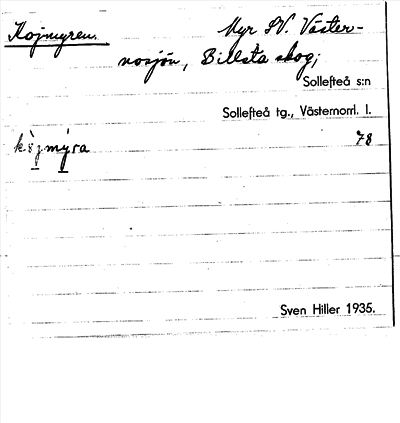 Kojmyren. Myr SV. Väster-
nosjön, Billsta skog;
Sollefteå s:n
Sollefteå tg., Västernorrl. l.
78
Sven Hiller 1935.